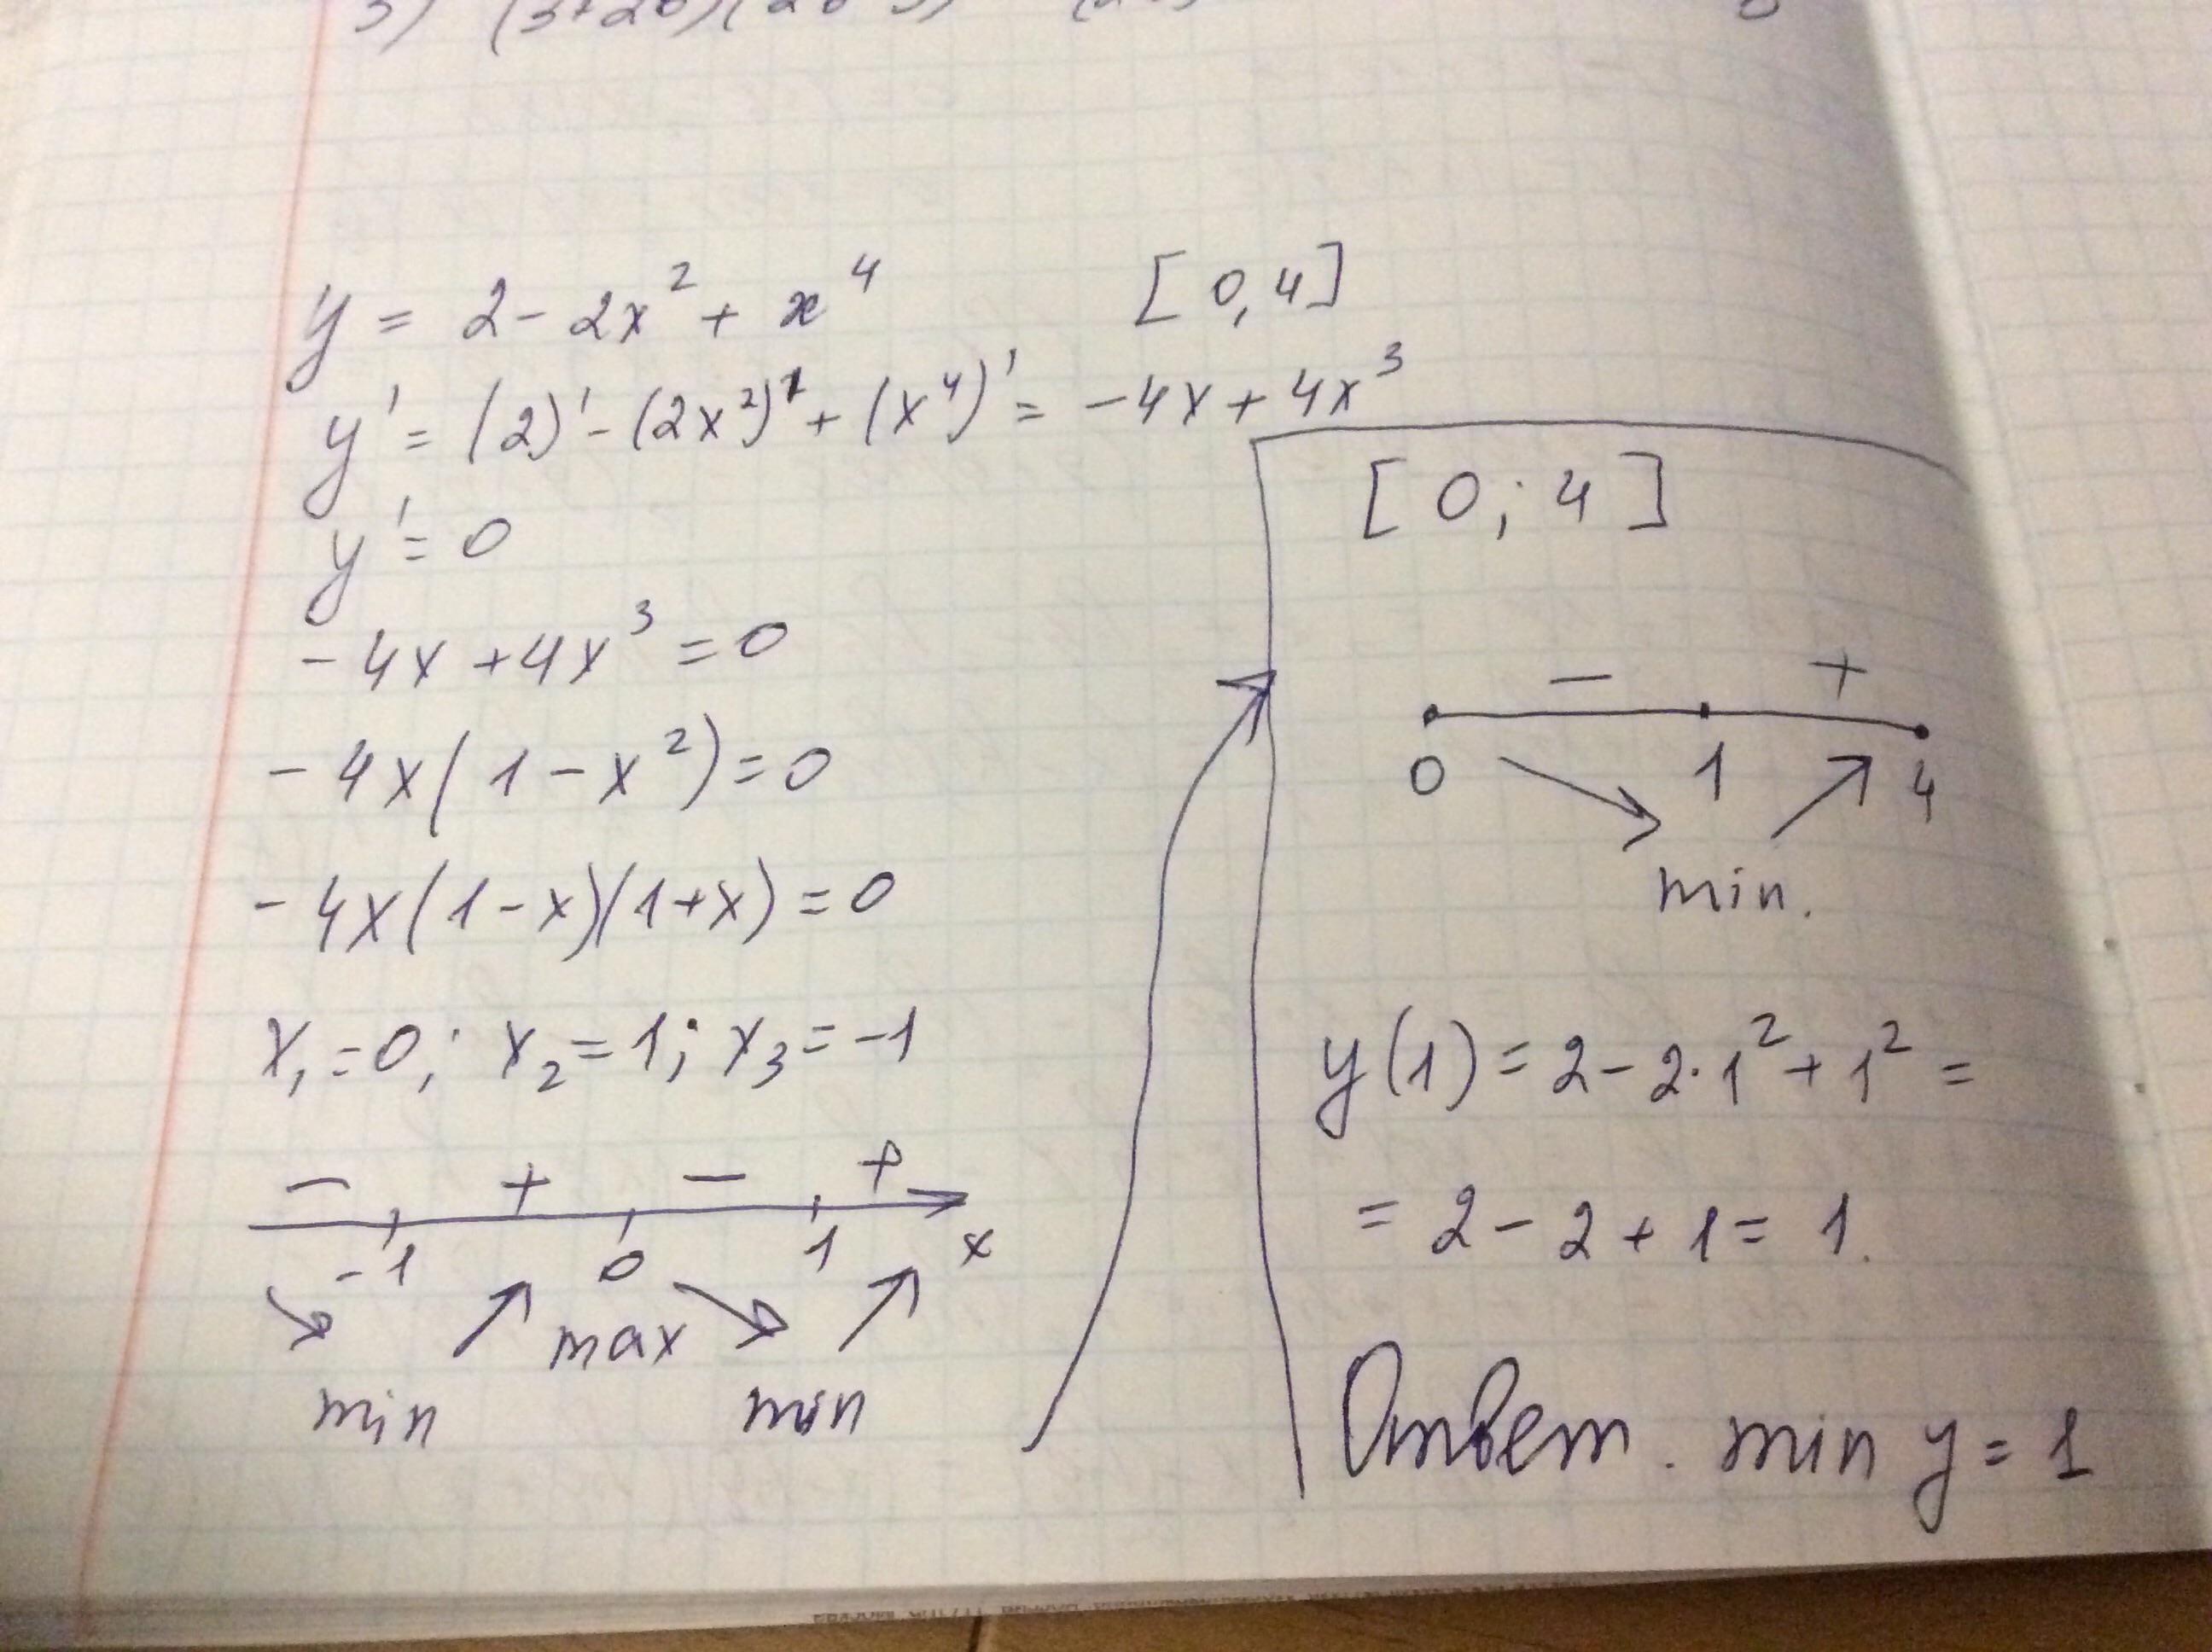 y = 2 - 2x² + x⁴ [0,4]
y' = (2)' - (2x²)' + (x⁴)' = -4x + 4x³
y' = 0
-4x + 4x³ = 0
-4x(1-x²) = 0
-4x(1-x)(1+x) = 0
x₁=0; x₂=1; x₃=-1
- + - +
-1 0 1 x
max
min min
[0; 4]
- +
0 1 4
min.
y(1) = 2-2·1²+1² =
= 2-2+1 = 1.
Ответ. min y = 1